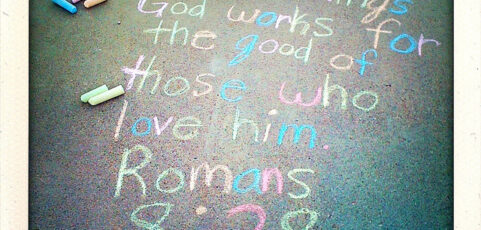 God works for
the good of
those who
love him.
Romans
8:28